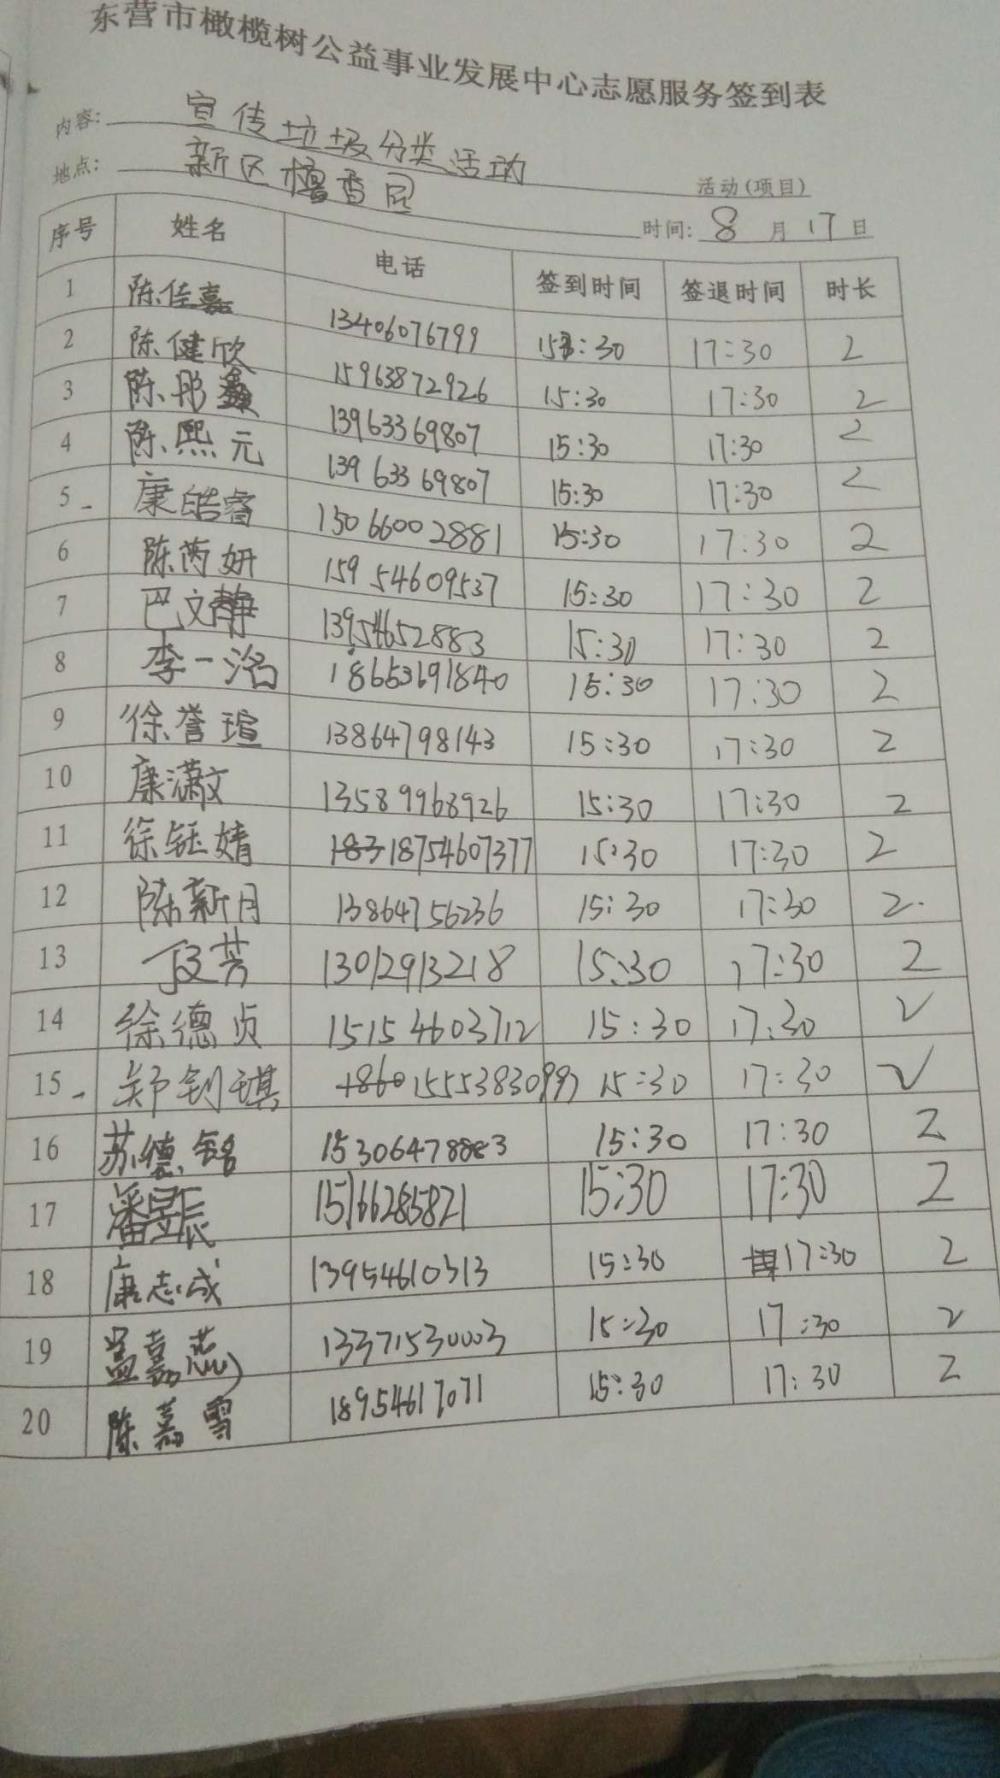 东营市橄榄树公益事业发展中心志愿服务签到表
内容: 宣传垃圾分类活动 活动(项目)
地点: 新区檀香园 时间: 8月17日
序号 姓名 电话 签到时间 签退时间 时长
1 陈佳嘉 13406076799 15:30 17:30 2
2 陈健欣 15963872926 15:30 17:30 2
3 陈彤鑫 13963369807 15:30 17:30 2
4 陈熙元 13963369807 15:30 17:30 2
5 康皓睿 15066002881 15:30 17:30 2
6 陈芮妍 15954609537 15:30 17:30 2
7 巴文静 13954652883 15:30 17:30 2
8 李一洺 18653691840 15:30 17:30 2
9 徐誉瑄 13864798143 15:30 17:30 2
10 康潇文 13589968926 15:30 17:30 2
11 徐钰婧 18754607377 15:30 17:30 2
12 陈新月 13864756236 15:30 17:30 2
13 段芳 13012913218 15:30 17:30 2
14 徐德贞 15154603712 15:30 17:30 2
15 郑钊琪 15553830997 15:30 17:30 2
16 苏德铭 15306478883 15:30 17:30 2
17 潘昱辰 15166285821 15:30 17:30 2
18 康志成 13954610313 15:30 17:30 2
19 孟嘉 13371530003 15:30 17:30 2
20 陈嘉雪 18954617071 15:30 17:30 2